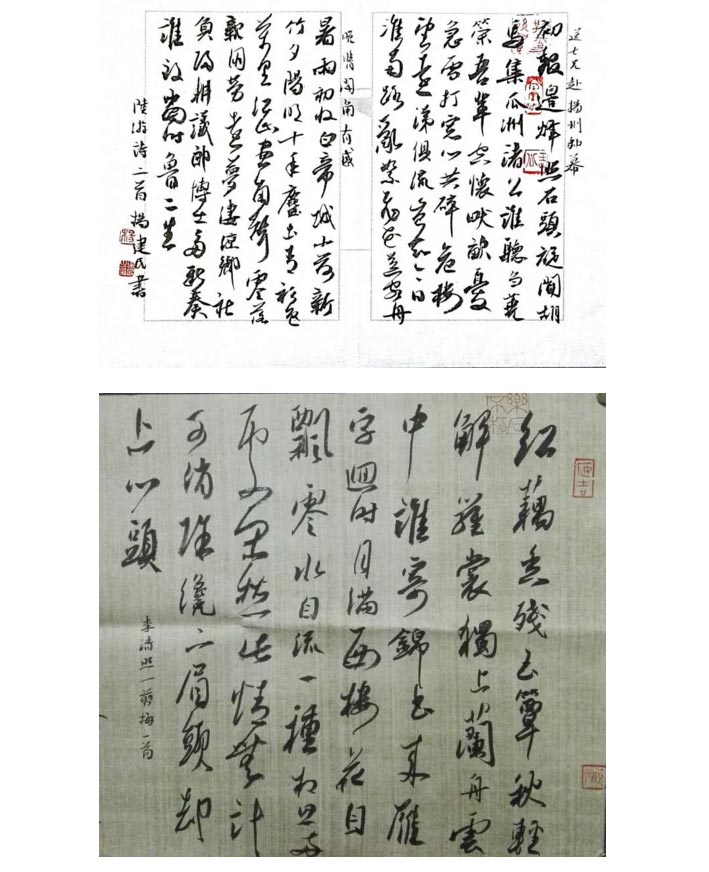 送七兄赴揚州帥幕
初報邊烽照石頭旋聞胡
馬集瓜洲渚公誰聽芻蕘
策吾輩空懷畎畝憂
急雪打窗心共碎危樓
望遠涕俱流豈知今日
淮南路亂絮飛花送客舟
晚晴聞角有感
暑雨初收白帝城小荷新
竹夕陽明十年塵土青衫色
萬里江山畫角聲零落
親朋勞遠夢凄涼鄉社
負歸耕議郎博士多新奏
誰致當時魯二生
陸游詩二首楊建民書
紅藕香殘玉簟秋輕
解羅裳獨上蘭舟雲
中誰寄錦書來雁
字迴時月滿西樓花自
飄零水自流一種相思兩
處閑愁此情無計
可消除纔下眉頭却
上心頭
李清照一剪梅一首